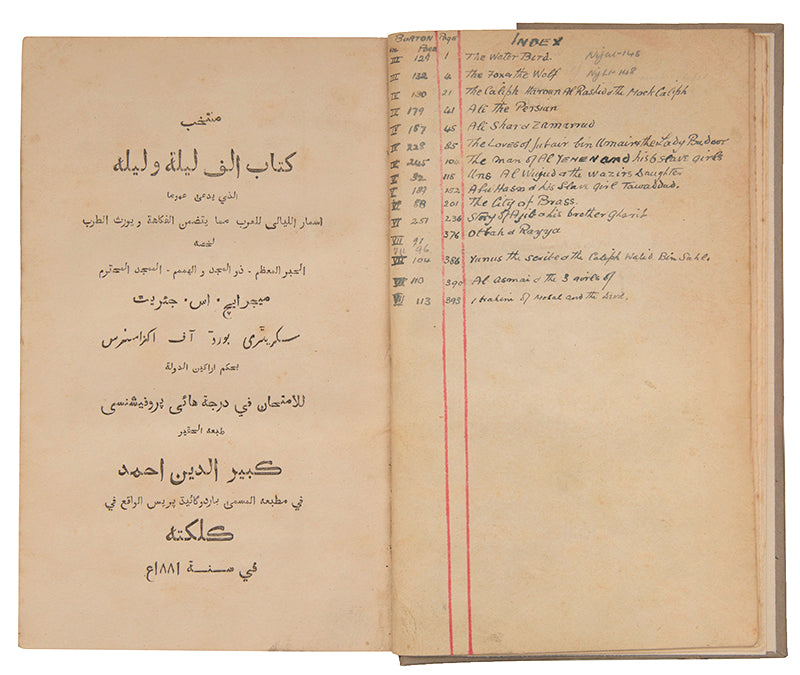 منتخب
كتاب الف ليلة و ليله
الذي يدعى عموما
اسمار الليالي للعرب مما يتضمن الفكاهة و يورث الطرب
لخصه
الحبر المعظم - ذو المجد و الهمم - الممجد المحترم
ميجر ايچ . اس . جئريت
سكريٹري بورڈ آف اكزامنرس
بحكم اراكين الدولة
للامتحان في درجة هائي پروفيشنسي
طبعه الحقير
كبير الدين احمد
في مطبعه المسمى باردوگائيڈ پريس الواقع في
كلكته
في سنة ١٨٨١ع
BURTON Page INDEX
Page
III 125 1 The Water Bird. Night-146
III 132 6 The Fox & the Wolf Night-148
IV 130 21 The Caliph Haroun Al Rashid & the Mock Caliph
IV 179 41 Ali the Persian
IV 187 45 Ali Shar & Zamarrud
IV 228 85 The Loves of Jubair bin Umair & the Lady Budoor
IV 245 100 The man of Al YEMEN and his 6 slave girls
V 32 118 Uns Al Wujud & the Wazirs Daughter
V 189 152 Abu Hasn & his Slave Girl Tawaddud.
VI 83 201 The City of Brass.
VI 257 236 Story of Ajib & his brother Gharib
VII 91 376 Otbah & Rayya
VII 96
VII 104 386 Yunus the scribe & the Caliph Walid Bin Sahl.
VII 110 390 Al Asmai & the 3 girls of
VII 113 393 Ibrahim of Mosul and the Devil.